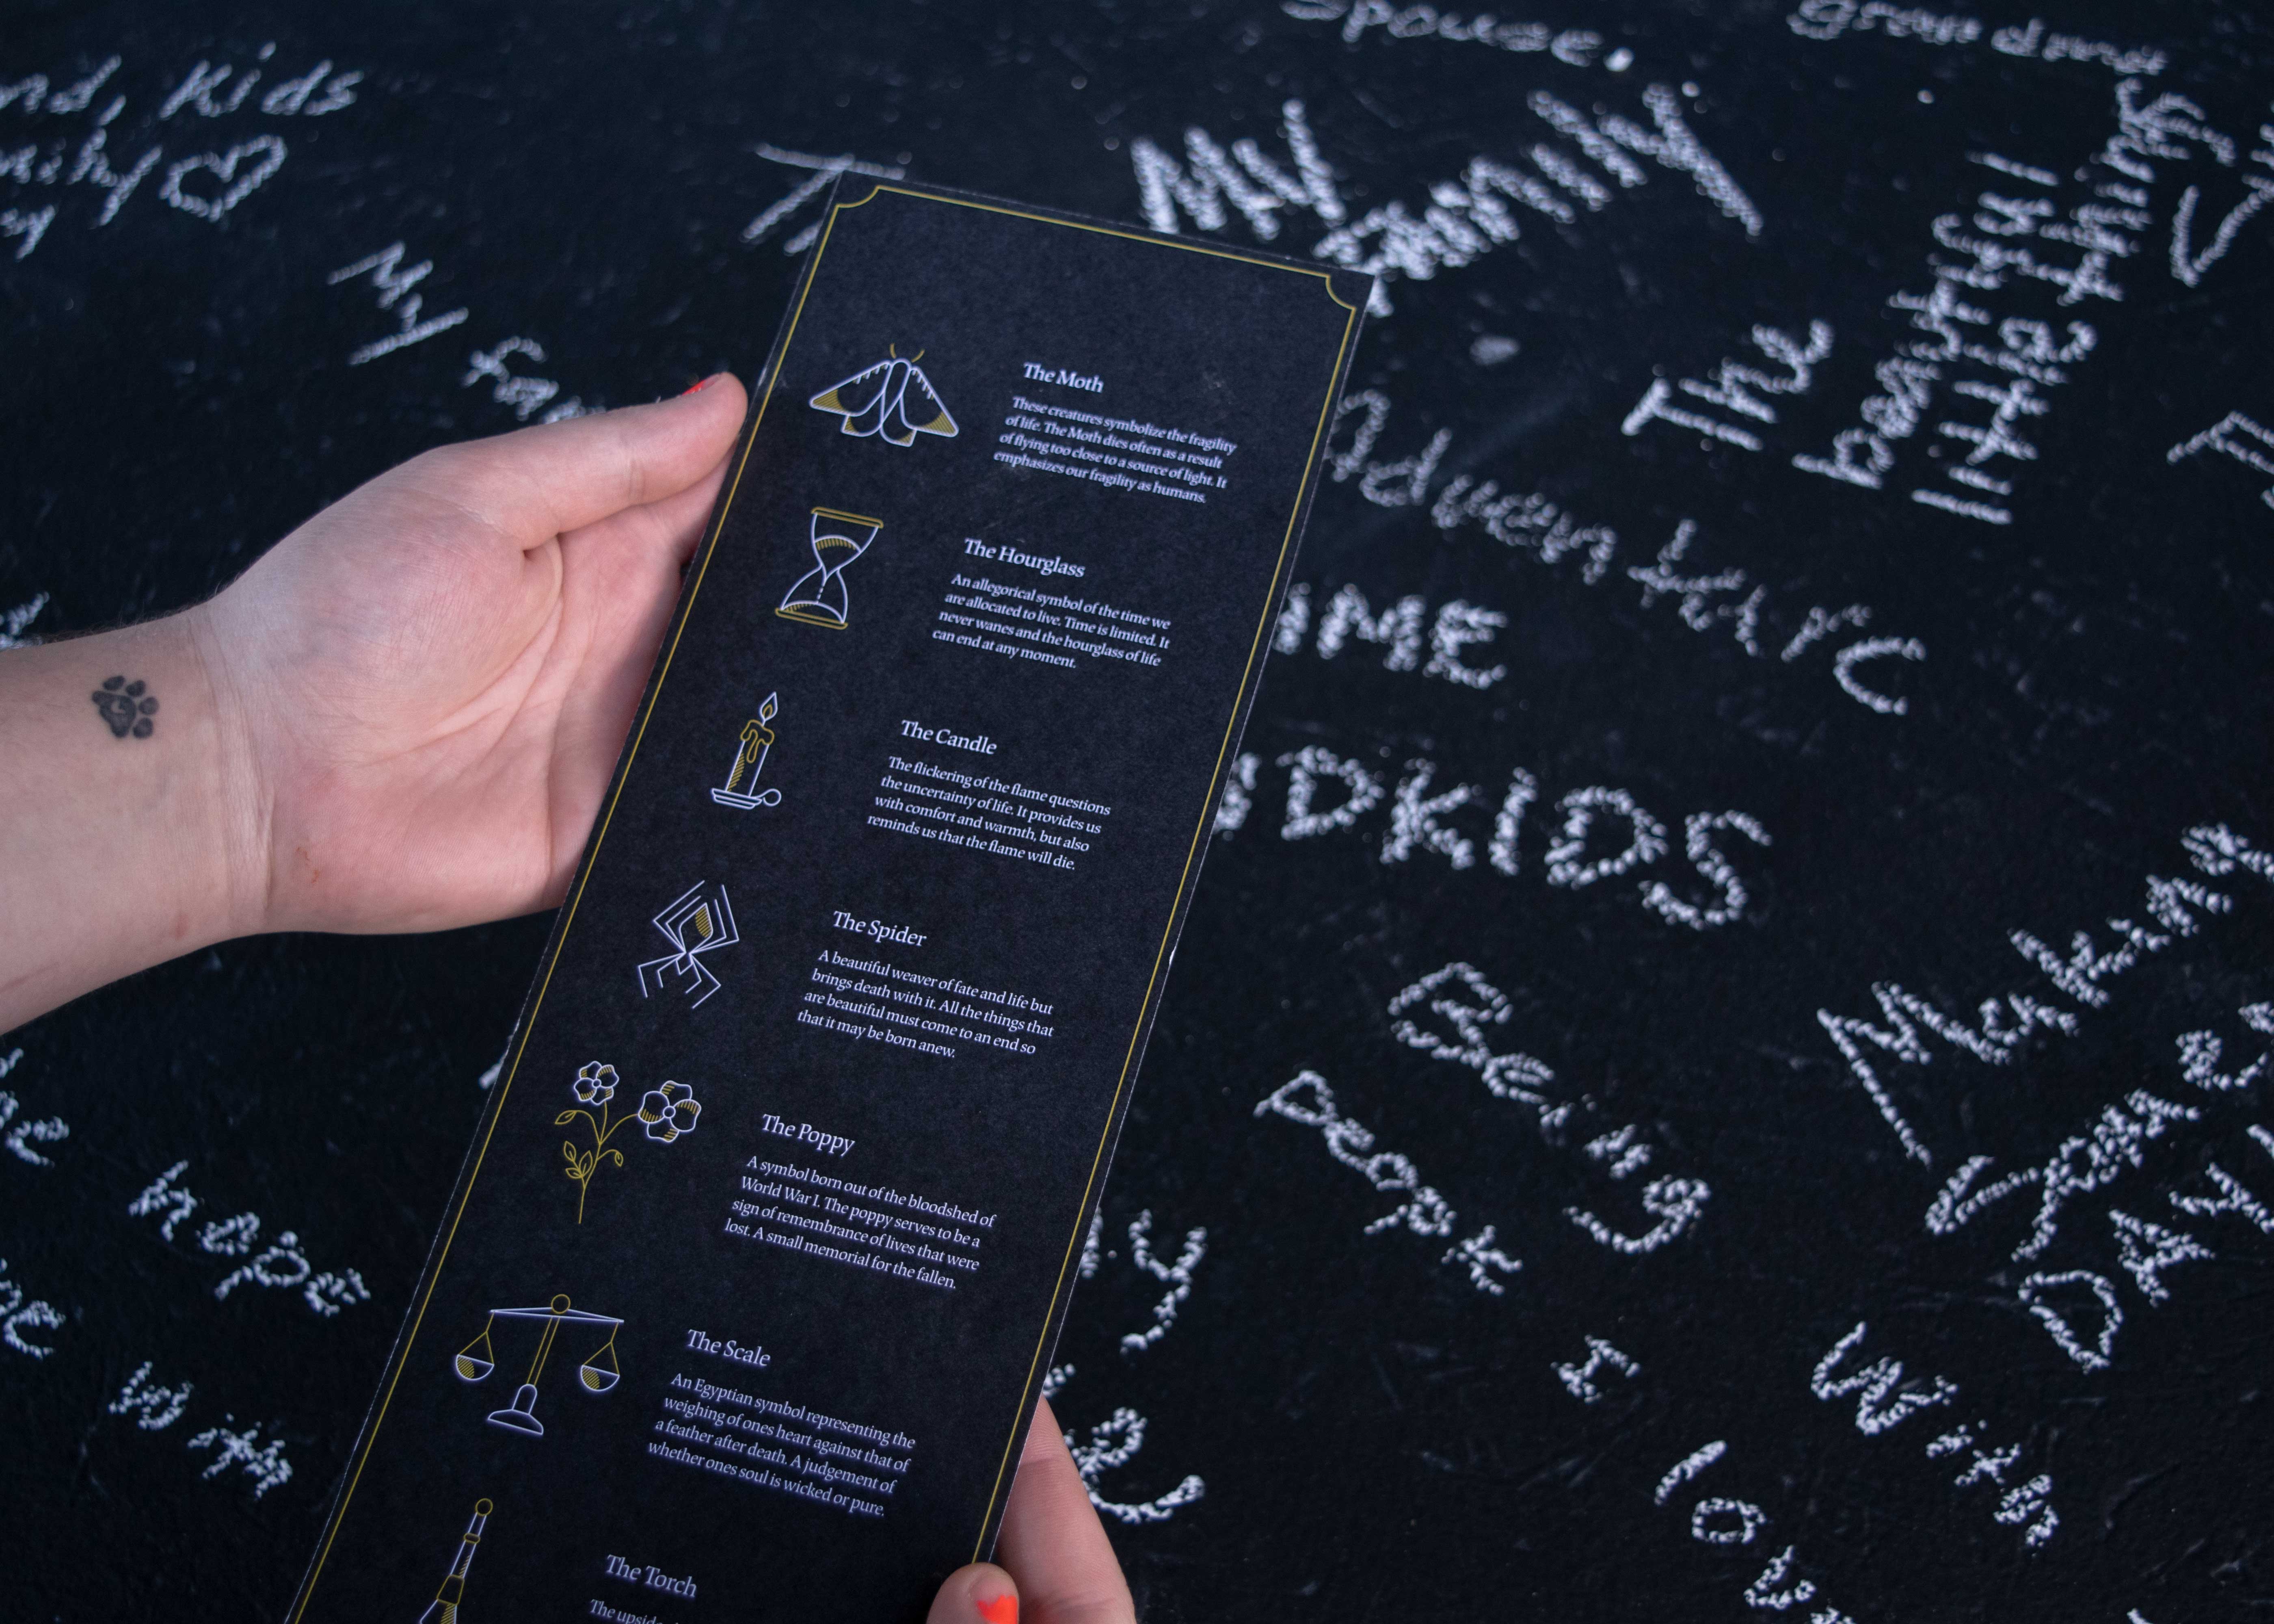 The Moth
These creatures symbolize the fragility
of life. The Moth dies often as a result
of flying too close to a source of light. It
emphasizes our fragility as humans.
The Hourglass
An allegorical symbol of the time we
are allocated to live. Time is limited. It
never wanes and the hourglass of life
can end at any moment.
The Candle
The flickering of the flame questions
the uncertainty of life. It provides us
with comfort and warmth, but also
reminds us that the flame will die.
The Spider
A beautiful weaver of fate and life but
brings death with it. All the things that
are beautiful must come to an end so
that it may be born anew.
The Poppy
A symbol born out of the bloodshed of
World War I. The poppy serves to be a
sign of remembrance of lives that were
lost. A small memorial for the fallen.
The Scale
An Egyptian symbol representing the
weighing of ones heart against that of
a feather after death. A judgement of
whether ones soul is wicked or pure.
The Torch
The
kids
My
spouse.
My
Family
The
beautiful
little things
Being
I
love
With
Making
DAY
hope
with